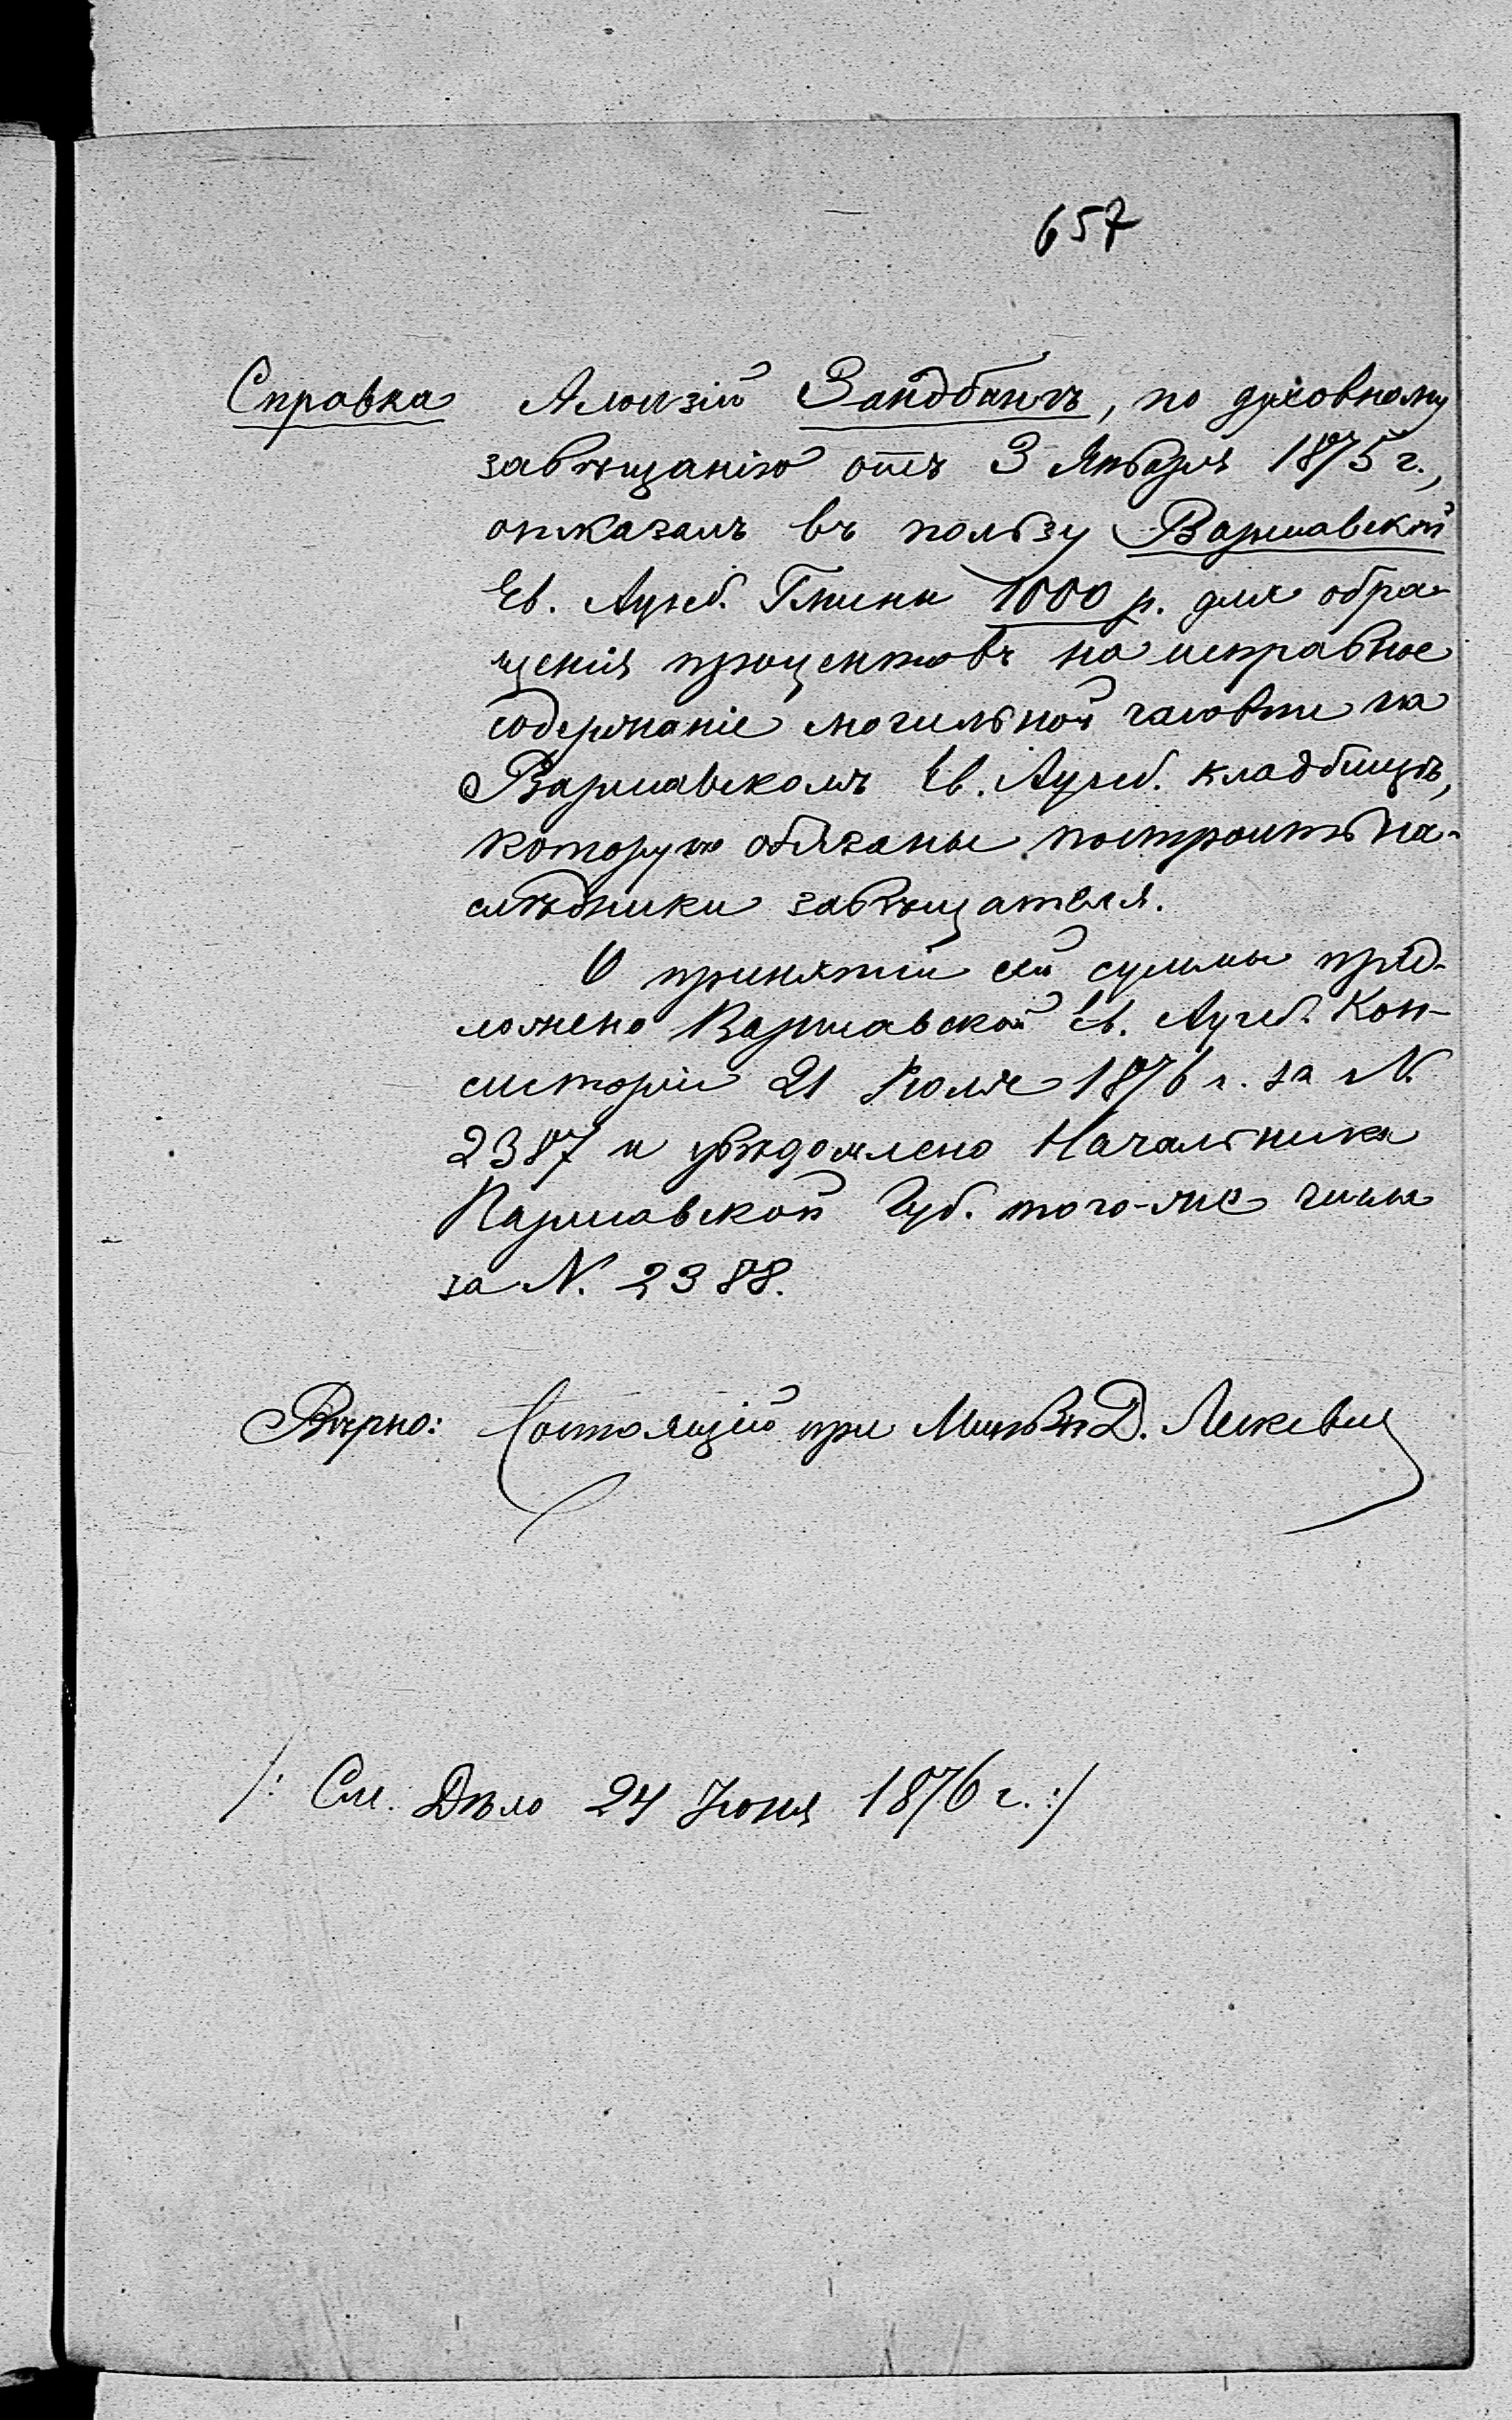 657
Справка Алоизій Зандбангъ, по духовному
завѣщанію отъ 3 Января 1875 г.,
отказалъ въ пользу Варшавской
Ев. Аугсб. Гмины 1000 р. для обра-
щенія процентовъ на исправное
содержаніе могильной часовни на
Варшавскомъ Ев. Аугсб. кладбищѣ,
которую обязаны построить на-
слѣдники завѣщателя.
О принятіи сей суммы пред-
ложено Варшавской Ев. Аугсб. Кон-
систоріи 21 Іюля 1876 г. за N.
2387 и увѣдомлено Начальника
Варшавской Губ. того-же числа
за N. 2388.
Вѣрно: Состоящій при Мин. Вн. Д.
/: См. Дѣло 24 Іюня 1876 г. :/